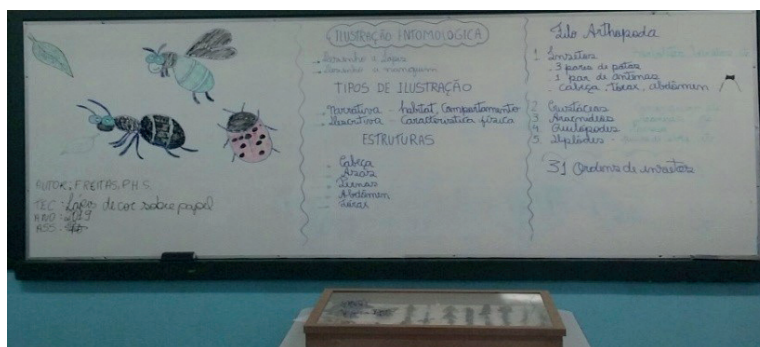 AUTOR: FREITAS, P.H.S.
TEC: Lápis de cor sobre papel
ANO:
ASS:
ILUSTRAÇÃO ENTOMOLÓGICA
Desenho a Lápis
Desenho a nanquim
TIPOS DE ILUSTRAÇÃO
Narrativa - habitat, Comportamento
Descritiva - Característica física
ESTRUTURAS
Cabeça
Asas
Pernas
Abdômen
Tórax
Filo Arthropoda
1 Insetos
. 3 pares de patas
. 1 par de antenas
. cabeça, tórax, abdômen
2 Crustáceos
3 Aracnídeos
4 Quilópodes
5 Diplódes
31 Ordens de insetos